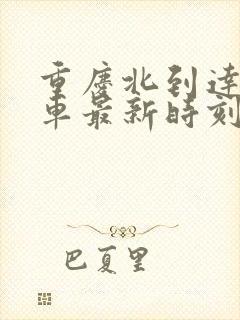 重庆北到达
车最新时刻
巴夏里